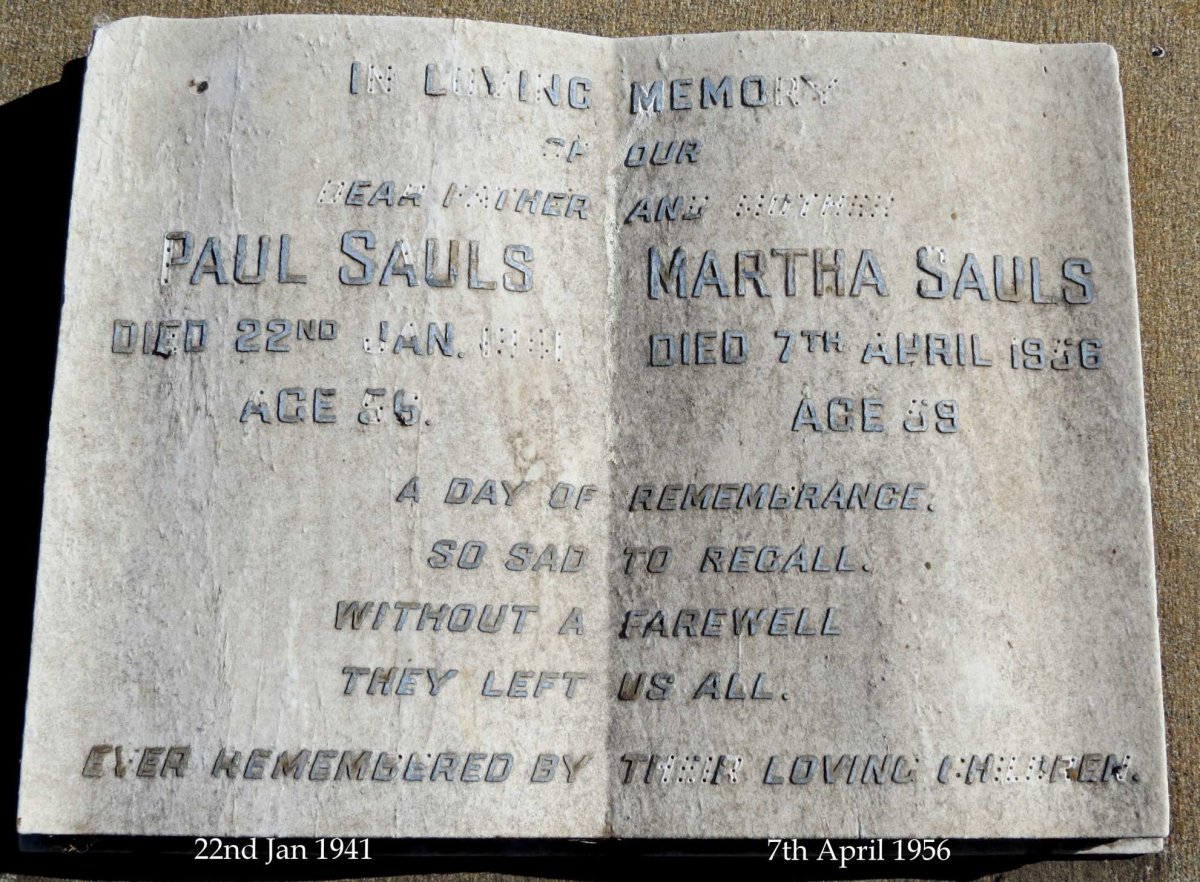 IN LOVING MEMORY
OF OUR
DEAR FATHER AND MOTHER
PAUL SAULS MARTHA SAULS
DIED 22ND JAN. 1941 DIED 7TH APRIL 1956
AGE 56. AGE 59
A DAY OF REMEMBRANCE.
SO SAD TO RECALL.
WITHOUT A FAREWELL
THEY LEFT US ALL.
EVER REMEMBERED BY THEIR LOVING CHILDREN.
22nd Jan 1941 7th April 1956